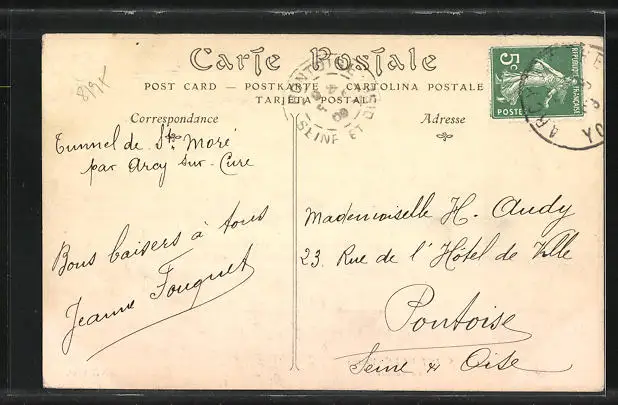 Carte Postale
POST CARD — POSTKARTE — CARTOLINA POSTALE
TARJETA POSTAL
Correspondance
Adresse
5c
REPUBLIQUE FRANÇAISE
POSTES
SEINE ET OISE
Tunnel de St. Moré
par Arcy sur Cure
Bons baisers à tous
Jeanne Fouquet
Mademoiselle H. Audy
23. Rue de l'Hôtel de Ville
Pontoise
Seine & Oise